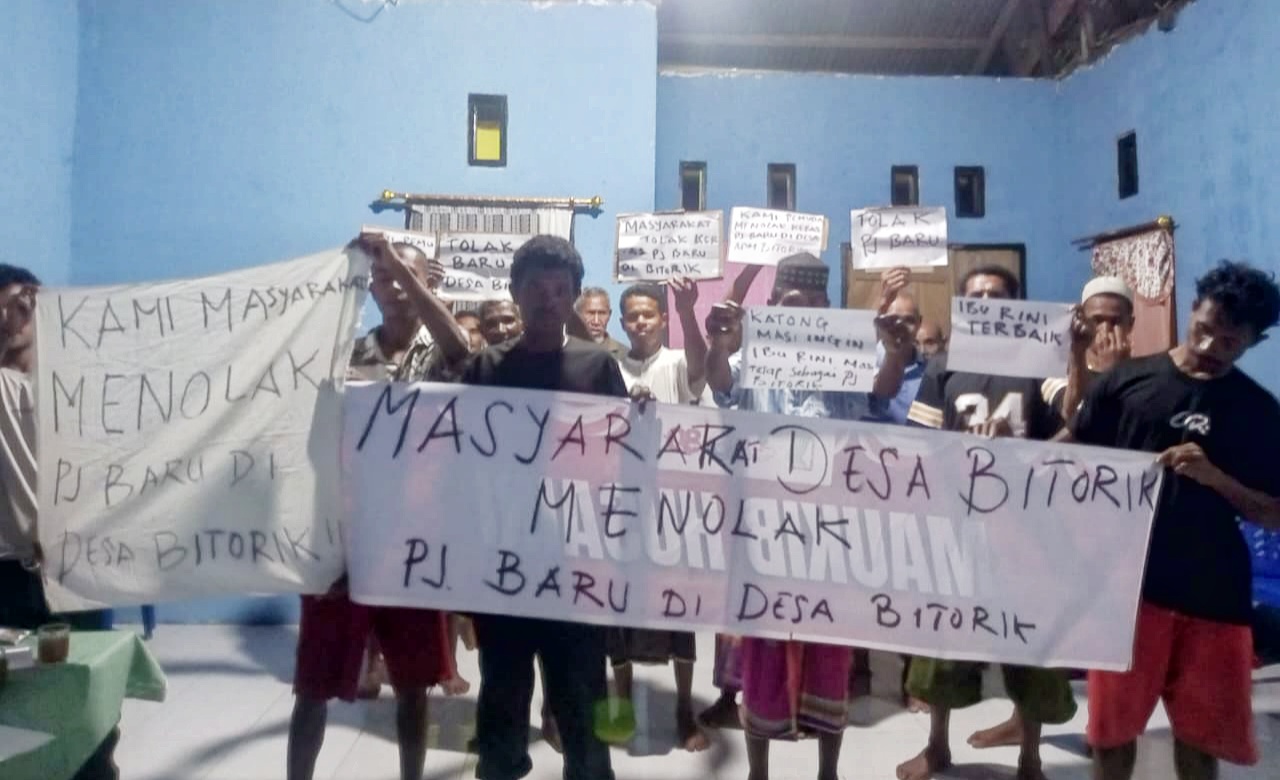 KAMI MASYARAKAT
MENOLAK
PJ BARU DI
DESA BITORIK!!
TOLAK
BARU
DESA BI
MASYARAKAT
TOLAK KER
PJ BARU
DI BITORIK
KAMI PEMUDA
MENOLAK KERAS
PJ BARU DI DESA
BITORIK
TOLAK
PJ BARU
KATONG
MASI INGIN
IBU RINI MAS
TETAP SEbagai PJ
BITORIK
IBU RINI
TERBAIK
34
MASYARAKAT DESA BITORIK
MENOLAK
PJ. BARU DI DESA BITORIK